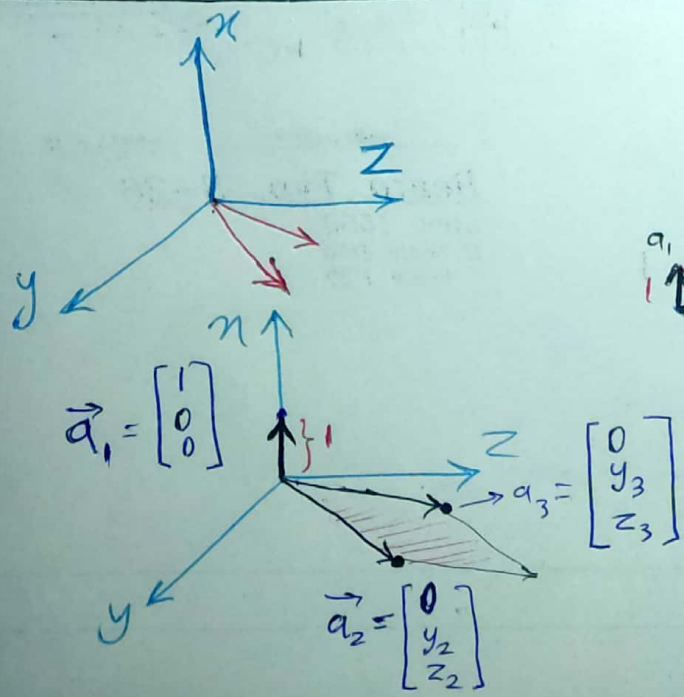 x
Z
y
a₁
1
x
a⃗₁ = [1 0 0]
} 1
Z
→ a₃ = [0 y₃ z₃]
y
a⃗₂ = [0 y₂ z₂]